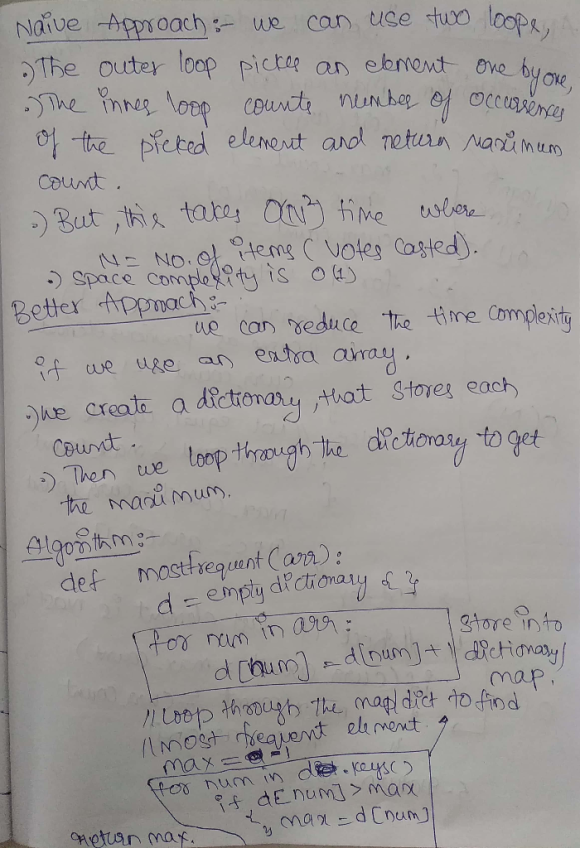 Naive Approach :- we can use two loops,
.) The outer loop picks an element one by one,
.) The inner loop counts number of occurrences
of the picked element and return maximum
count.
.) But, this takes O(N²) time where
N = No. of items ( votes casted).
.) space complexity is O(1)
Better Approach :-
we can reduce the time complexity
if we use an extra array.
.) we create a dictionary, that stores each
count.
.) Then we loop through the dictionary to get
the maximum.
Algorithm :-
def mostfrequent (arr) :
d = empty dictionary { }
for num in arr :
d [num] = d[num] + 1
store into
dictionary/
map.
// Loop through the map/dict to find
// most frequent element
max = -1
for num in d.keys()
if d[num] > max
{ } max = d[num]
return max.